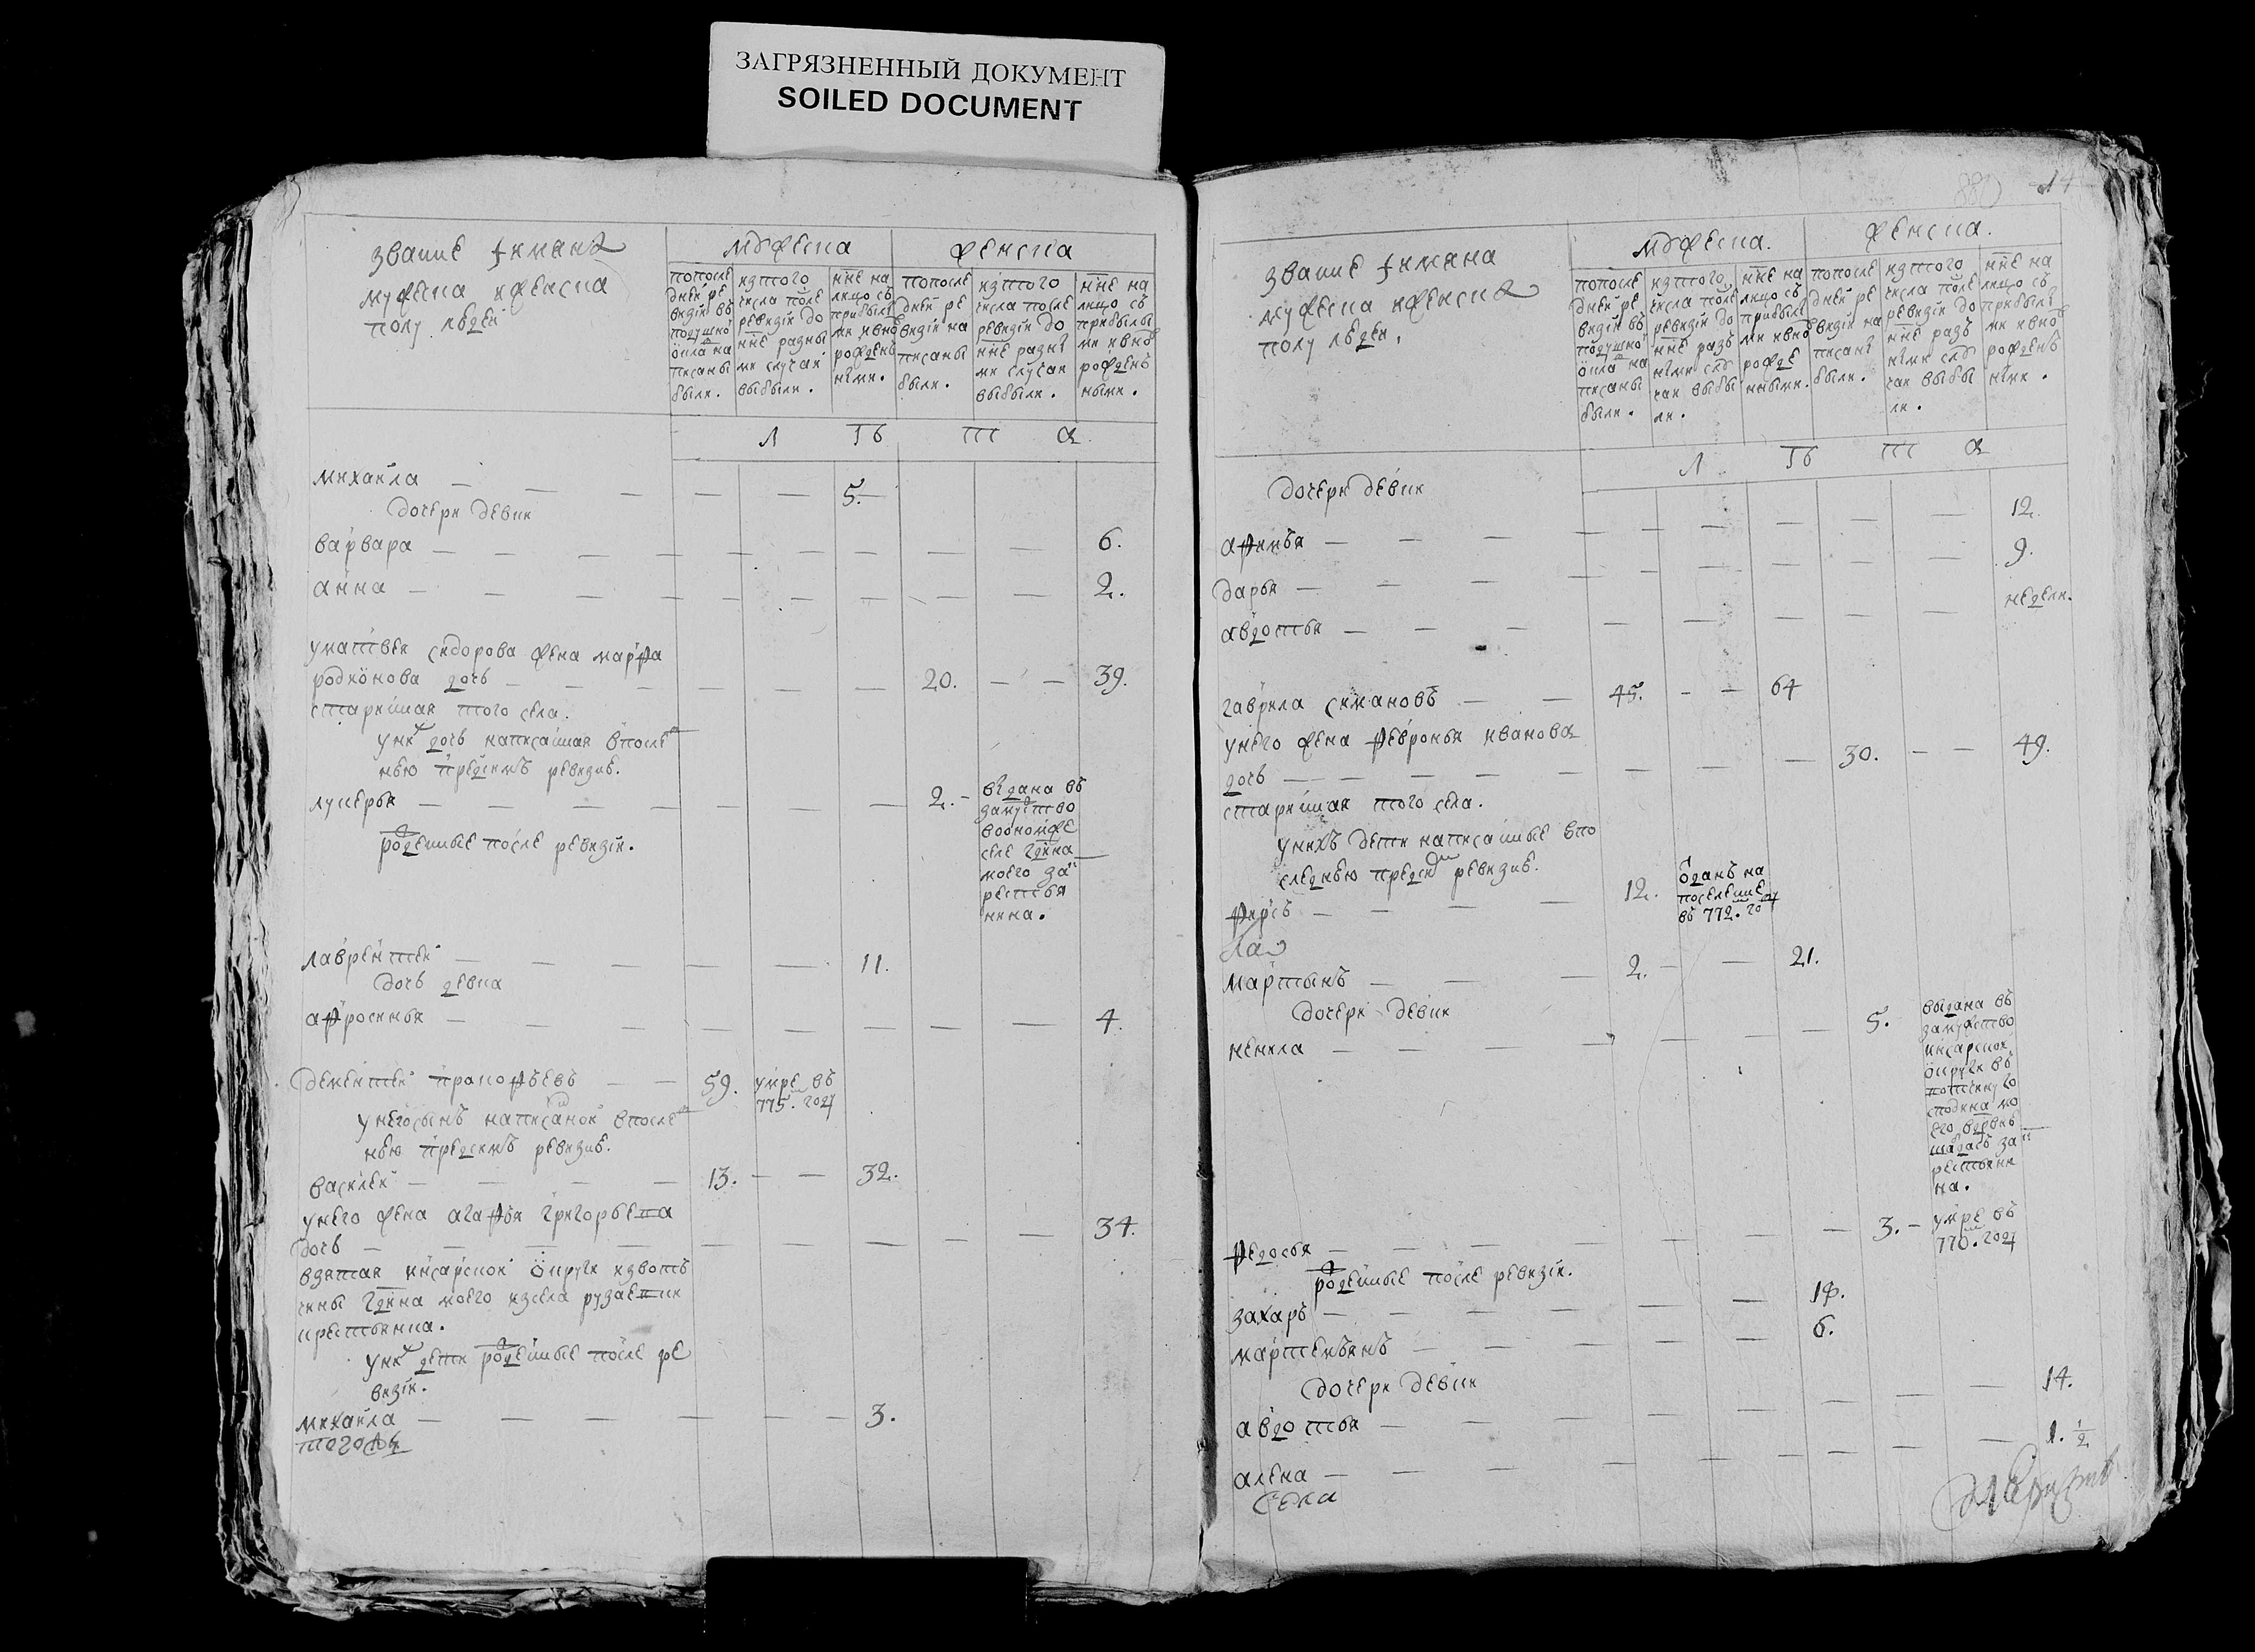 ЗАГРЯЗНЕННЫЙ ДОКУМЕНТ
SOILED DOCUMENT
звание и имяна
мужеска иженска
полу людей
мужеска
женска
попосле
дней ре
визіи въ
подушно
окла на
писаны
были.
изтого
числа после
ревизіи до
нне разны
ми случаи
выбыли.
нне на
лицо съ
прибылы
ми ивно
рожден
ными.
попосле
дней ре
визіи на
писаны
были.
изтого
числа после
ревизіи до
нне разны
ми случаи
выбыли.
нне на
лицо съ
прибылы
ми ивно
рожденъ
ными.
Л Ѣ т а
михайла 5.
дочери девки
варвара 6.
анна 2.
уматвея сидорова жена марфа
родионова дочь 20. 39.
старинная того села.
уних дочь написанная впосле
нею предсимъ ревизию.
лукерья 2. выдана въ
замуство
водномже
селе гдна
моего за
рестья
нина.
рожденные после ревизіи.
лаврентей 11.
дочь девка
афросинья 4.
дементей пракофьевъ 59. умре въ
775. году
унегосынъ написаной впосле
нею предсимъ ревизию.
василей 13. 32.
унего жена агафья григорьева
дочь 34.
взятая инсарской округи извот
чины гдна моего изсела рузаевки
крестьянка.
уних дети рожденные после ре
визіи.
михайла 3.
тогожъ
14
звание и имяна
мужеска иженска
полу людей.
мужеска.
женска.
попосле
дней ре
визіи въ
подушно
окла на
писаны
были.
изтого
числа после
ревизіи до
нне разъ
ными слу
чаи выбы
ли.
нне на
лицо съ
прибылы
ми ивно
рожде
нными.
попосле
дней ре
визіи на
писаны
были.
изтого
числа после
ревизіи до
нне разъ
ными слу
чаи выбы
ли.
нне на
лицо съ
прибылы
ми ивно
рожденъ
ными.
Л Ѣ т а
дочери девки
афимья 12.
дарья 9.
авдотья недели.
гаврила симановъ 45. 64
унего жена февронья иванова
дочь 30. 49.
старинная того села.
унихъ дети написанные впо
следнею предсим ревизию.
фирсъ 12. оданъ на
поселение
въ 772. году
мартынъ 2. 21.
дочери девки
ненила 5. выдана въ
замужство
инсарской
округи въ
вотчину го
сподина мо
его вдерев
шадасъ за к
рестьяни
на.
федосья 3. умре въ
770. году
рожденные после ревизіи.
захаръ 18.
мартемьянъ 6.
дочери девки
авдотья 14.
алена 1. 1/2
села